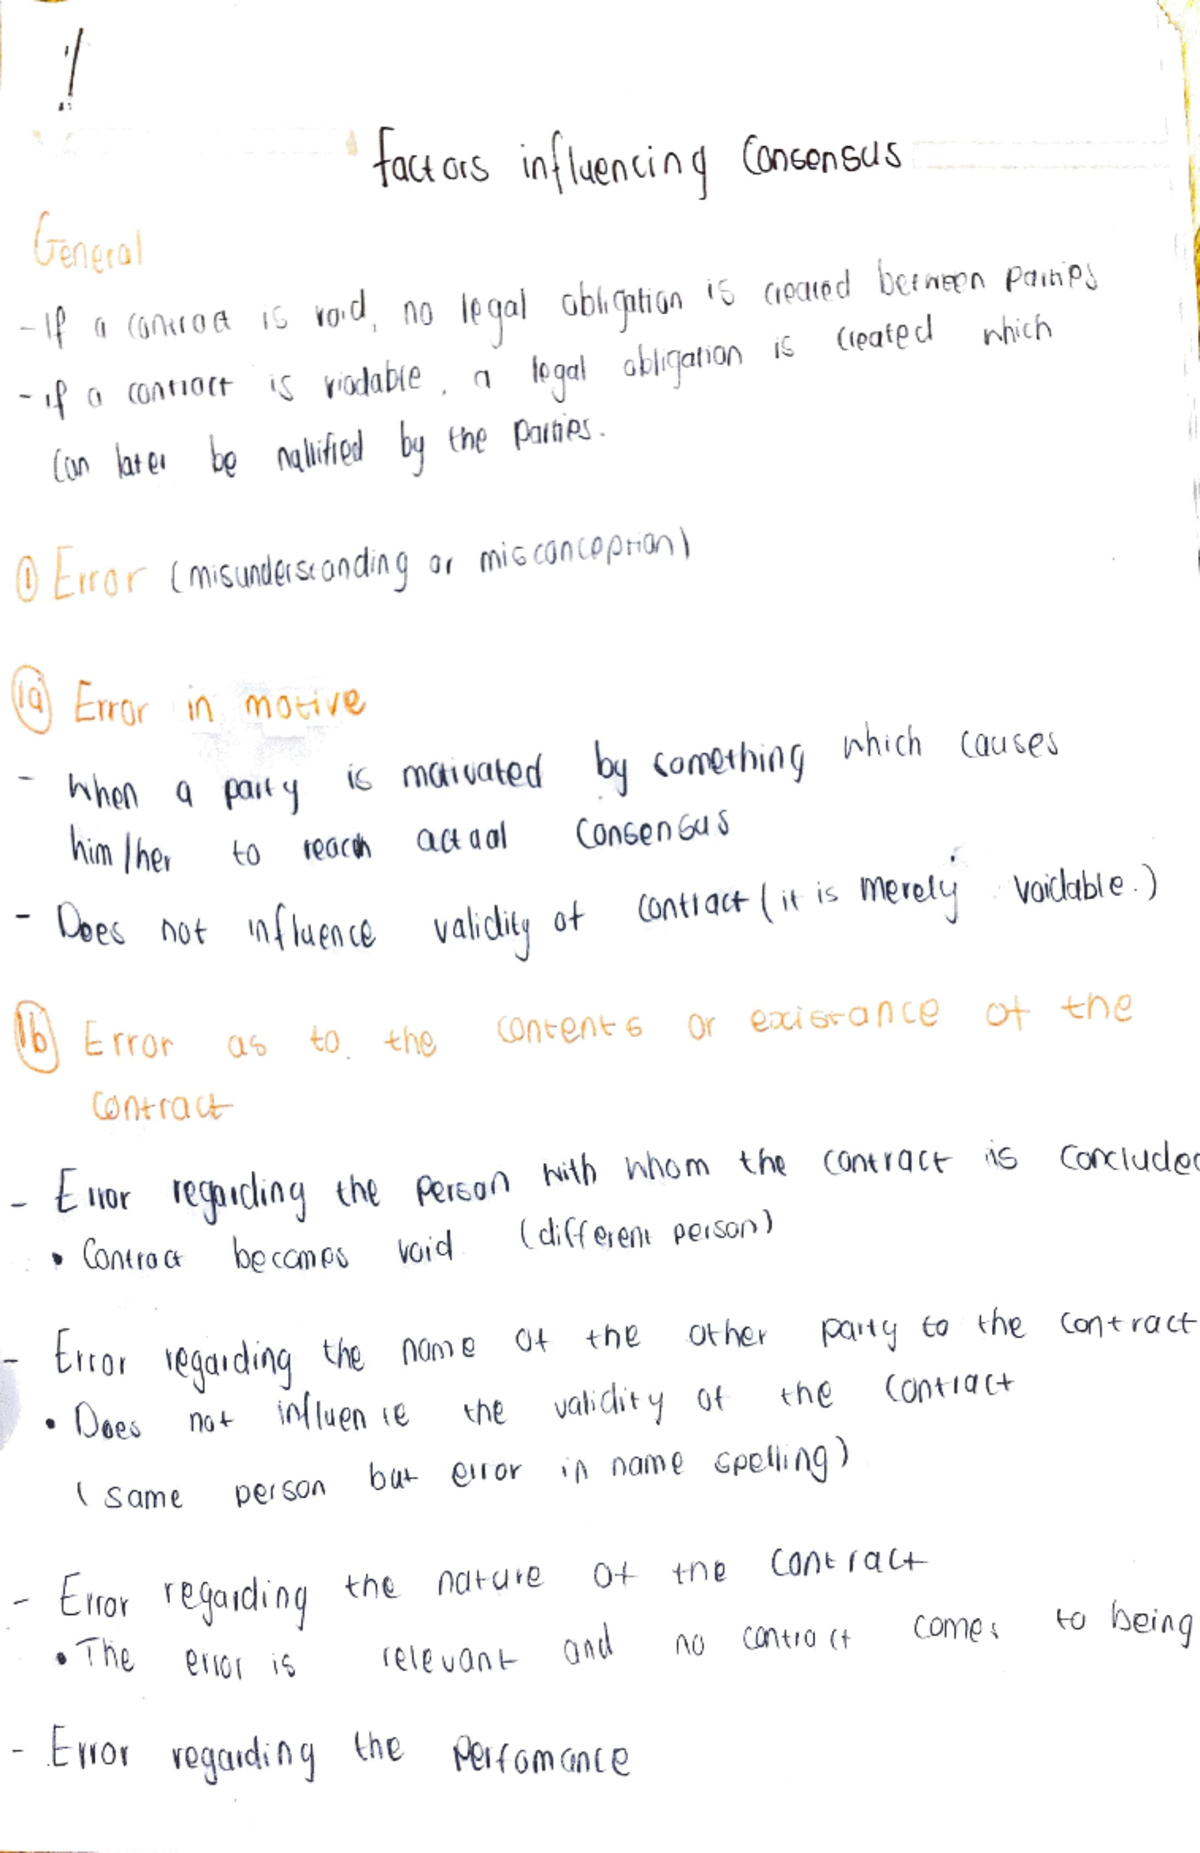 Factors influencing Consensus
General
- If a contract is void, no legal obligation is created between parties
- if a contract is viodable, a legal obligation is created which
can later be nallified by the parties.
① Error (misunderstanding or misconception)
1a Error in motive
- When a party is motivated by something which causes
him/her to reach actual consensus
- Does not influence validity of contract (it is merely voidable.)
1b Error as to the contents or existance of the
contract
- Error regarding the person with whom the contract is concluded
• Contract becomes void (different person)
- Error regarding the name of the other party to the contract
• Does not influence the validity of the contract
(same person but error in name spelling)
- Error regarding the nature of the contract
• The error is relevant and no contract comes to being
- Error regarding the Perfomance